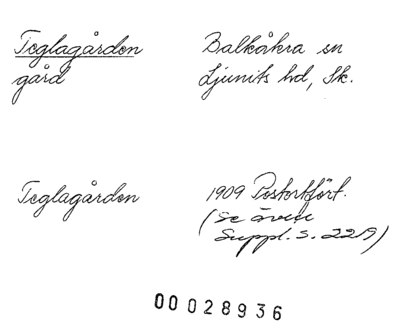 Teglagården Balkåkra sn
gård Ljunits hd, Sk.
Teglagården 1909 Postortfört.
(Se även
Suppl. s. 229)
00028936